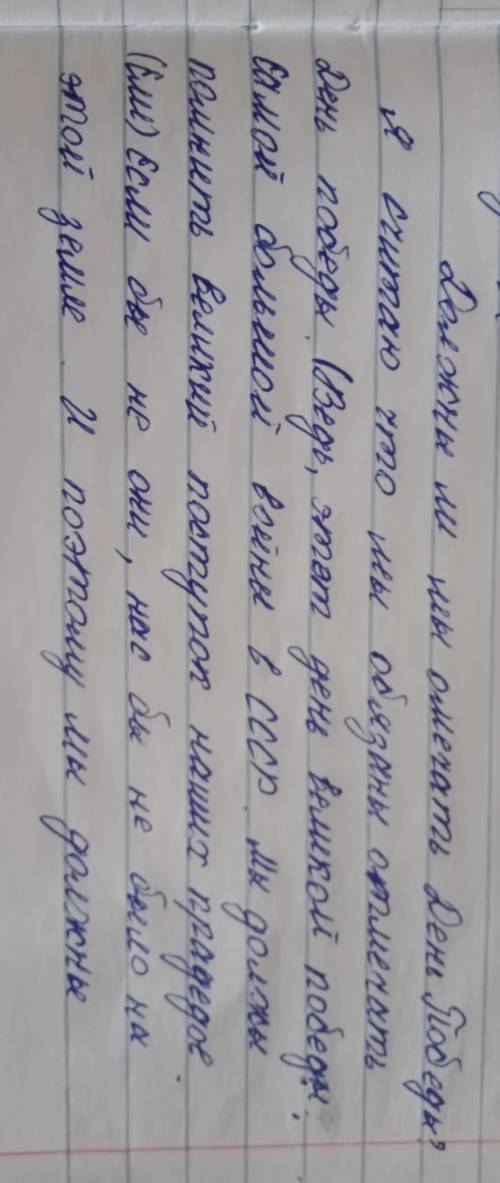 Должны ли мы отмечать День Победы?
Я считаю что мы обязаны отмечать
день победы. (Ведь, этот день великой победы.
Самой большой войны в СССР. Мы должы
помнить великий поступок наших прадедов.
(Если) Если бы не они, нас бы не было на
этой земле. И поэтому мы должны